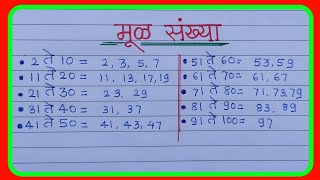 मूळ संख्या
• 2 ते 10 = 2, 3, 5, 7
• 11 ते 20 = 11, 13, 17, 19
• 21 ते 30 = 23, 29
• 31 ते 40 = 31, 37
• 41 ते 50 = 41, 43, 47
• 51 ते 60 = 53, 59
• 61 ते 70 = 61, 67
• 71 ते 80 = 71, 73, 79
• 81 ते 90 = 83, 89
• 91 ते 100 = 97